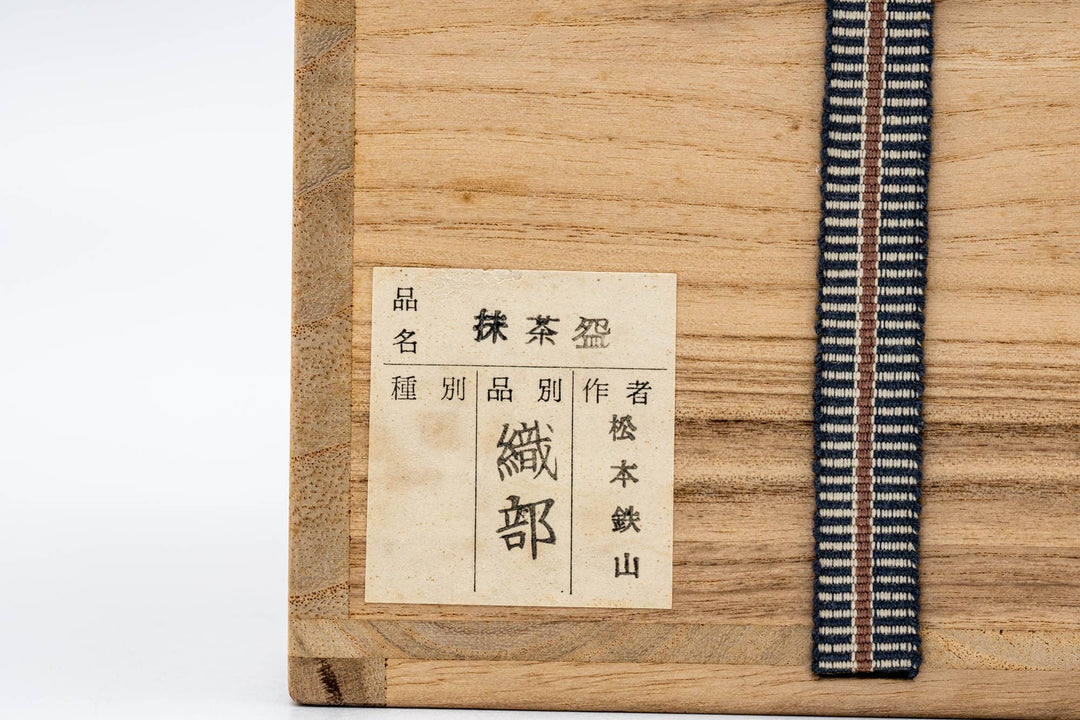 品名
抹茶盌
種別
品別
織部
作者
松本鉄山